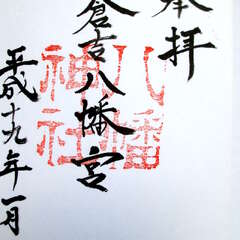 奉拝
倉吉八幡宮
八幡
神社
平成十九年一月